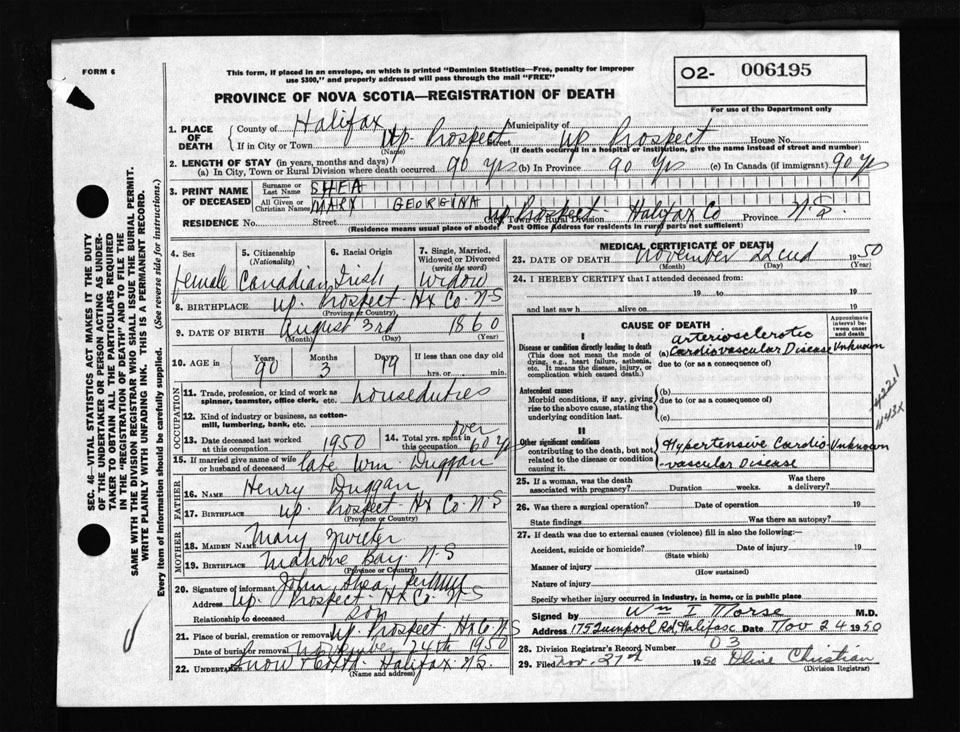 FORM 6
This form, if placed in an envelope, on which is printed "Dominion Statistics—Free, penalty for improper
use $300," and properly addressed will pass through the mail "FREE"
O2- 006195
For use of the Department only
PROVINCE OF NOVA SCOTIA—REGISTRATION OF DEATH
1. PLACE OF DEATH
County of Halifax Municipality of
If in City or Town Up. Prospect Street Up Prospect House No.
(Name) (If death occurred in a hospital or institution, give the name instead of street and number)
2. LENGTH OF STAY (in years, months and days)
(a) In City, Town or Rural Division where death occurred 90 yrs (b) In Province 90 yrs (c) In Canada (if immigrant) 90 yrs
3. PRINT NAME OF DECEASED
Surname or Last Name SHEA
All Given or Christian Names MARY GEORGINA
RESIDENCE No. Street Up Prospect Halifax Co Province N.S.
City, Town or Rural Division
(Residence means usual place of abode. Post Office Address for residents in rural parts not sufficient)
4. Sex
female
5. Citizenship
(Nationality)
Canadian
6. Racial Origin
Irish
7. Single, Married,
Widowed or Divorced
(write the word)
Widow
8. BIRTHPLACE Up. Prospect Hx Co. N-S
(Province or Country)
9. DATE OF BIRTH August 3rd 1860
(Month) (Day) (Year)
10. AGE in
Years 90
Months 3
Days 19
If less than one day old
hrs. or min.
OCCUPATION
11. Trade, profession, or kind of work as
spinner, teamster, office clerk, etc. houseduties
12. Kind of industry or business, as cotton-
mill, lumbering, bank, etc.
13. Date deceased last worked
at this occupation 1950
14. Total yrs. spent in
this occupation over 60 yrs
15. If married give name of wife
or husband of deceased late Wm. Duggan
FATHER
16. NAME Henry Duggan
17. BIRTHPLACE Up. Prospect Hx Co N-S
(Province or Country)
MOTHER
18. MAIDEN NAME Mary
19. BIRTHPLACE Mahone Bay. N-S
(Province or Country)
20. Signature of informant John Shea
Address Up. Prospect. Hx Co. N-S
Relationship to deceased son
21. Place of burial, cremation or removal Up. Prospect Hx Co N-S
Date of burial or removal November 24th 1950
22. UNDERTAKER Snow & Co Ltd. Halifax N.S.
(Name and address)
MEDICAL CERTIFICATE OF DEATH
23. DATE OF DEATH November 22nd 1950
(Month) (Day) (Year)
24. I HEREBY CERTIFY that I attended deceased from:
19 to 19
and last saw h alive on 19
CAUSE OF DEATH
Approximate interval between onset and death
I
Disease or condition directly leading to death
(This does not mean the mode of dying, e.g., heart failure, asthenia, etc. It means the disease, injury, or complication which caused death.)
(a) Arteriosclerotic
Cardiovascular Disease Unknown
due to (or as a consequence of)
Antecedent causes
Morbid conditions, if any, giving rise to the above cause, stating the underlying condition last.
(b)
due to (or as a consequence of)
(c)
4221
443X
II
Other significant conditions
contributing to the death, but not related to the disease or condition causing it.
Hypertensive Cardio-
-vascular Disease Unknown
25. If a woman, was the death
associated with pregnancy? Duration weeks. Was there a delivery?
26. Was there a surgical operation? Date of operation 19
State findings Was there an autopsy?
27. If death was due to external causes (violence) fill in also the following:—
Accident, suicide or homicide? Date of injury 19
(State which)
Manner of injury
(How sustained)
Nature of injury
Specify whether injury occurred in industry, in home, or in public place
Signed by Wm I Morse M.D.
Address 175 Quinpool Rd, Halifax Date Nov 24 1950
28. Division Registrar's Record Number 03
29. Filed Nov. 27th 1950 Olive Christian
(Division Registrar)
SEC. 46—VITAL STATISTICS ACT MAKES IT THE DUTY
OF THE UNDERTAKER OR PERSON ACTING AS UNDER-
TAKER TO OBTAIN ALL THE PARTICULARS REQUIRED
IN THE "REGISTRATION OF DEATH" AND TO FILE THE
SAME WITH THE DIVISION REGISTRAR WHO SHALL ISSUE THE BURIAL PERMIT.
WRITE PLAINLY WITH UNFADING INK. THIS IS A PERMANENT RECORD.
Every item of information should be carefully supplied. (See reverse side for instructions.)